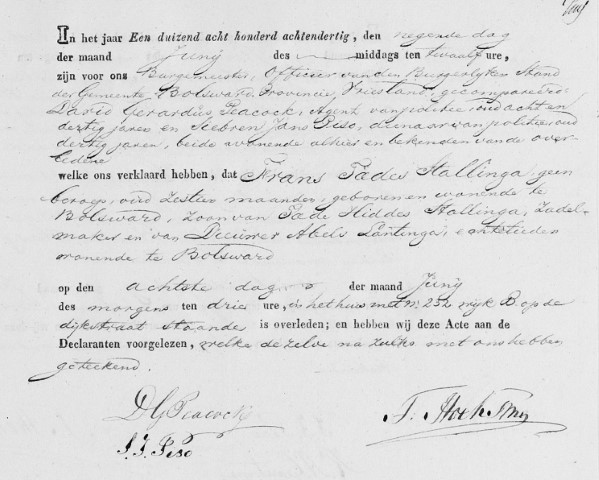 In het jaar Een duizend acht honderd achtendertig, den negende dag
der maand Junij des middags ten twaalf ure,
zijn voor ons Burgemeester, Officier van den Burgerlyken Stand
der Gemeente Bolsward, Provincie Vriesland, gecompareerd
David Gerardus Peacock, Agent van politie oud acht en
dertig jaren en Seebren Jans Peso, dienaar van politie oud
dertig jaren, beide wonende alhier en bekenden van de over-
ledene
welke ons verklaard hebben, dat Frans Tades Stallinga, geen
beroep, oud zestien maanden, geboren en wonende te
Bolsward, zoon van Tade Hiddes Stallinga, Zadel-
maker en van Dieuwer Abels Lantinga, echtelieden
wonende te Bolsward
op den achtste dag der maand Junij
des morgens ten drie ure, in het huis met n. 252 wyk B. op de
dijkstraat staande is overleden; en hebben wij deze Acte aan de
Declaranten voorgelezen, welke dezelve na zulks met ons hebben
geteekend.
DG Peacock
S. J. Peso